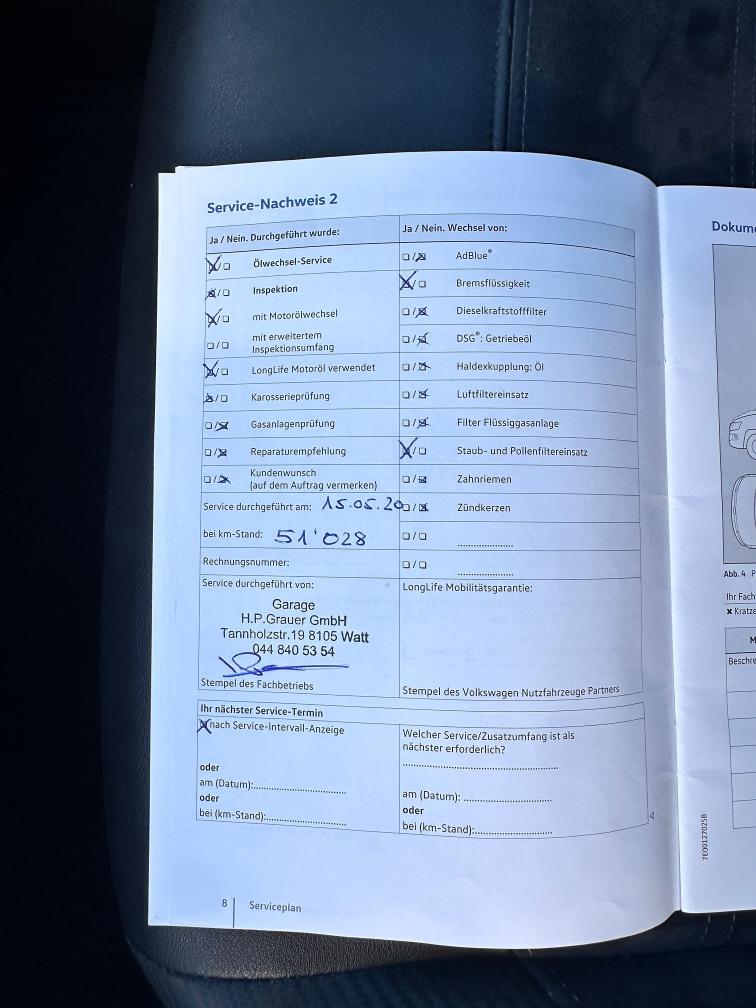 Service-Nachweis 2
Ja / Nein. Durchgeführt wurde:
Ölwechsel-Service
Inspektion
mit Motorölwechsel
mit erweitertem
Inspektionsumfang
LongLife Motoröl verwendet
Karosserieprüfung
Gasanlagenprüfung
Reparaturempfehlung
Kundenwunsch
(auf dem Auftrag vermerken)
Service durchgeführt am: 15.05.20
bei km-Stand: 51'028
Rechnungsnummer:
Service durchgeführt von:
Garage
H.P.Grauer GmbH
Tannholzstr.19 8105 Watt
044 840 53 54
Stempel des Fachbetriebs
Ja / Nein. Wechsel von:
AdBlue®
Bremsflüssigkeit
Dieselkraftstofffilter
DSG®: Getriebeöl
Haldexkupplung: Öl
Luftfiltereinsatz
Filter Flüssiggasanlage
Staub- und Pollenfiltereinsatz
Zahnriemen
Zündkerzen
LongLife Mobilitätsgarantie:
Stempel des Volkswagen Nutzfahrzeuge Partners
Ihr nächster Service-Termin
nach Service-Intervall-Anzeige
oder
am (Datum):
oder
bei (km-Stand):
Welcher Service/Zusatzumfang ist als
nächster erforderlich?
am (Datum):
oder
bei (km-Stand):
8 Serviceplan
7E0012702SB
Dokume
Abb. 4 P
Ihr Fach
x Kratze
M
Beschre